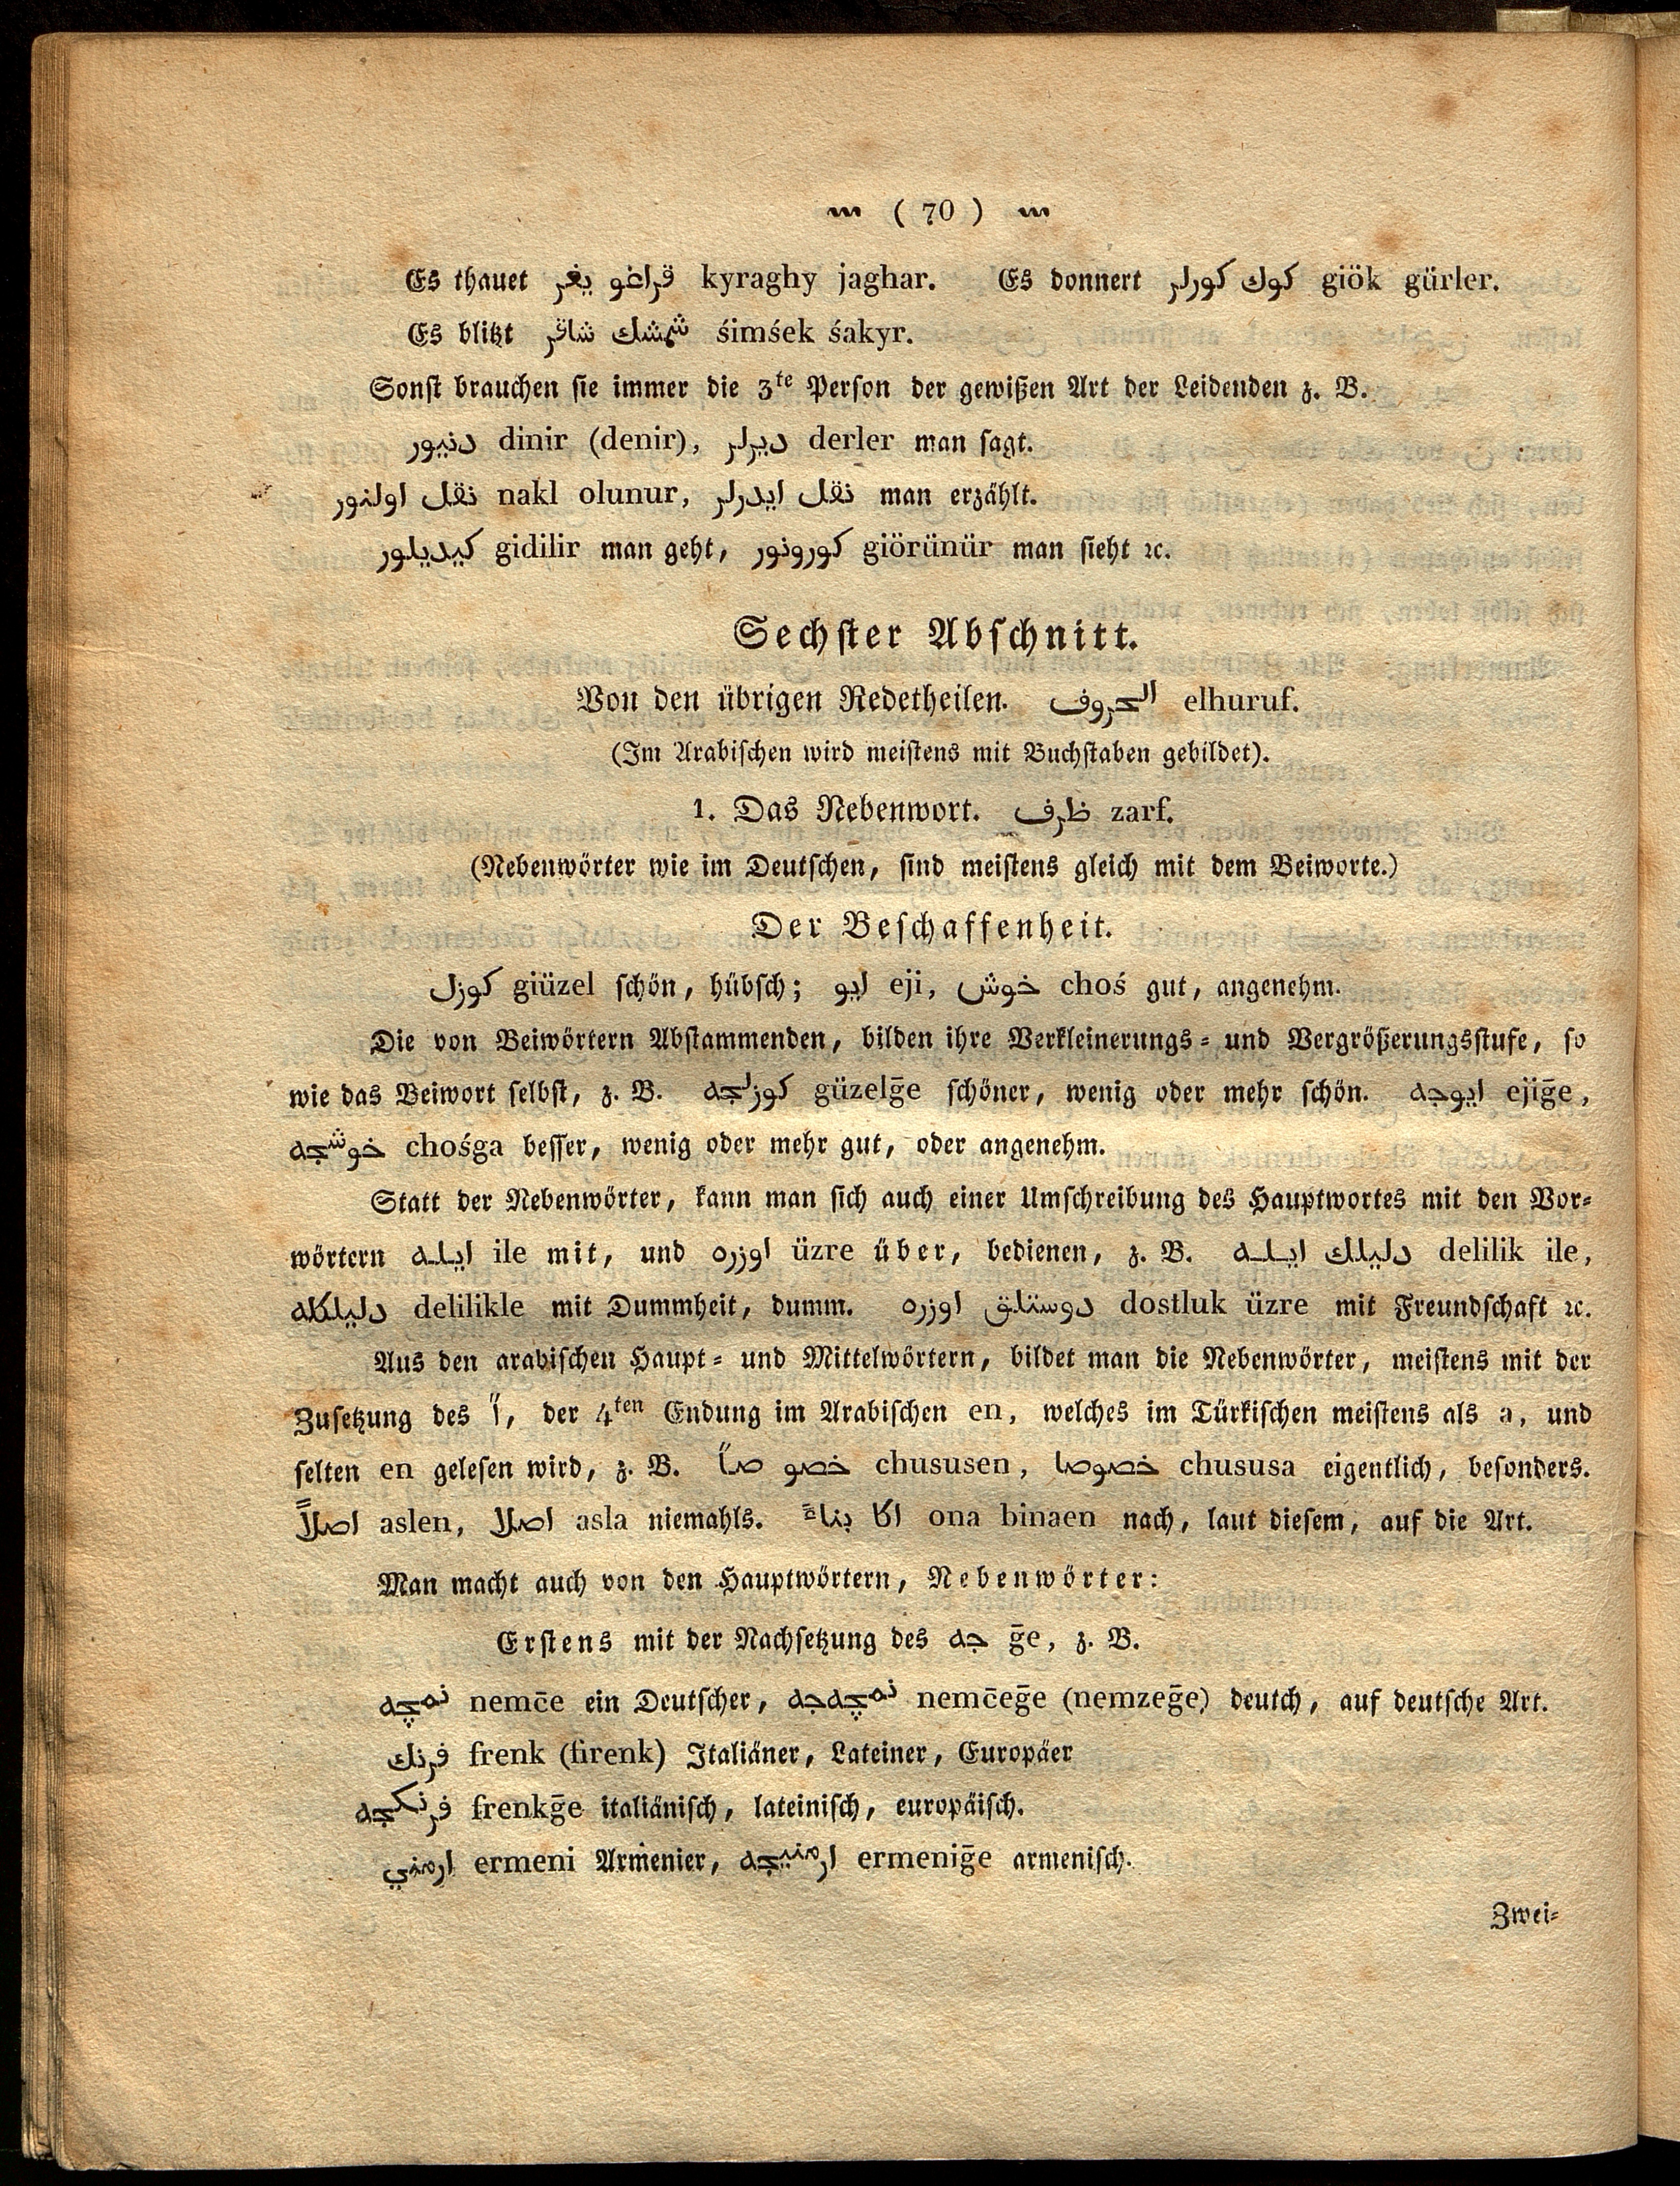 ( 70 )
Es thauet قراغو يغر kyraghy jaghar. Es donnert كوك كورلر giök gürler.
Es blitzt شمشك شاقر śimśek śakyr.
Sonst brauchen sie immer die 3te Person der gewißen Art der Leidenden z. B.
دنيور dinir (denir), ديرلر derler man sagt.
نقل اولنور nakl olunur, نقل ايدرلر man erzählt.
كيديلور gidilir man geht, كورونور giörünür man sieht ꝛc.
Sechster Abschnitt.
Von den übrigen Redetheilen. الحروف elhuruf.
(Im Arabischen wird meistens mit Buchstaben gebildet).
1. Das Nebenwort. ظرف zarf.
(Nebenwörter wie im Deutschen, sind meistens gleich mit dem Beiworte.)
Der Beschaffenheit.
كوزل giüzel schön, hübsch; ايو eji, خوش choś gut, angenehm.
Die von Beiwörtern Abstammenden, bilden ihre Verkleinerungs- und Vergrößerungsstufe, so
wie das Beiwort selbst, z. B. كوزلجه güzelḡe schöner, wenig oder mehr schön. ايوجه ejiḡe,
خوشجه chośga besser, wenig oder mehr gut, oder angenehm.
Statt der Nebenwörter, kann man sich auch einer Umschreibung des Hauptwortes mit den Vor-
wörtern ايله ile mit, und اوزره üzre über, bedienen, z. B. دليلك ايله delilik ile,
دليلكله delilikle mit Dummheit, dumm. دوستلق اوزره dostluk üzre mit Freundschaft ꝛc.
Aus den arabischen Haupt- und Mittelwörtern, bildet man die Nebenwörter, meistens mit der
Zusetzung des اً, der 4ten Endung im Arabischen en, welches im Türkischen meistens als a, und
selten en gelesen wird, z. B. خصو صاً chususen, خصوصا chususa eigentlich, besonders.
اصلاً aslen, اصلا asla niemahls. اكا بناءً ona binaen nach, laut diesem, auf die Art.
Man macht auch von den Hauptwörtern, Nebenwörter:
Erstens mit der Nachsetzung des جه ḡe, z. B.
نمچه nemc̄e ein Deutscher, نمچه‌جه nemc̄eḡe (nemzeḡe) deutch, auf deutsche Art.
فرنك frenk (firenk) Italiäner, Lateiner, Europäer
فرنكجه frenkḡe italiänisch, lateinisch, europäisch.
ارمني ermeni Armenier, ارمنيجه ermeniḡe armenisch.
Zwei-